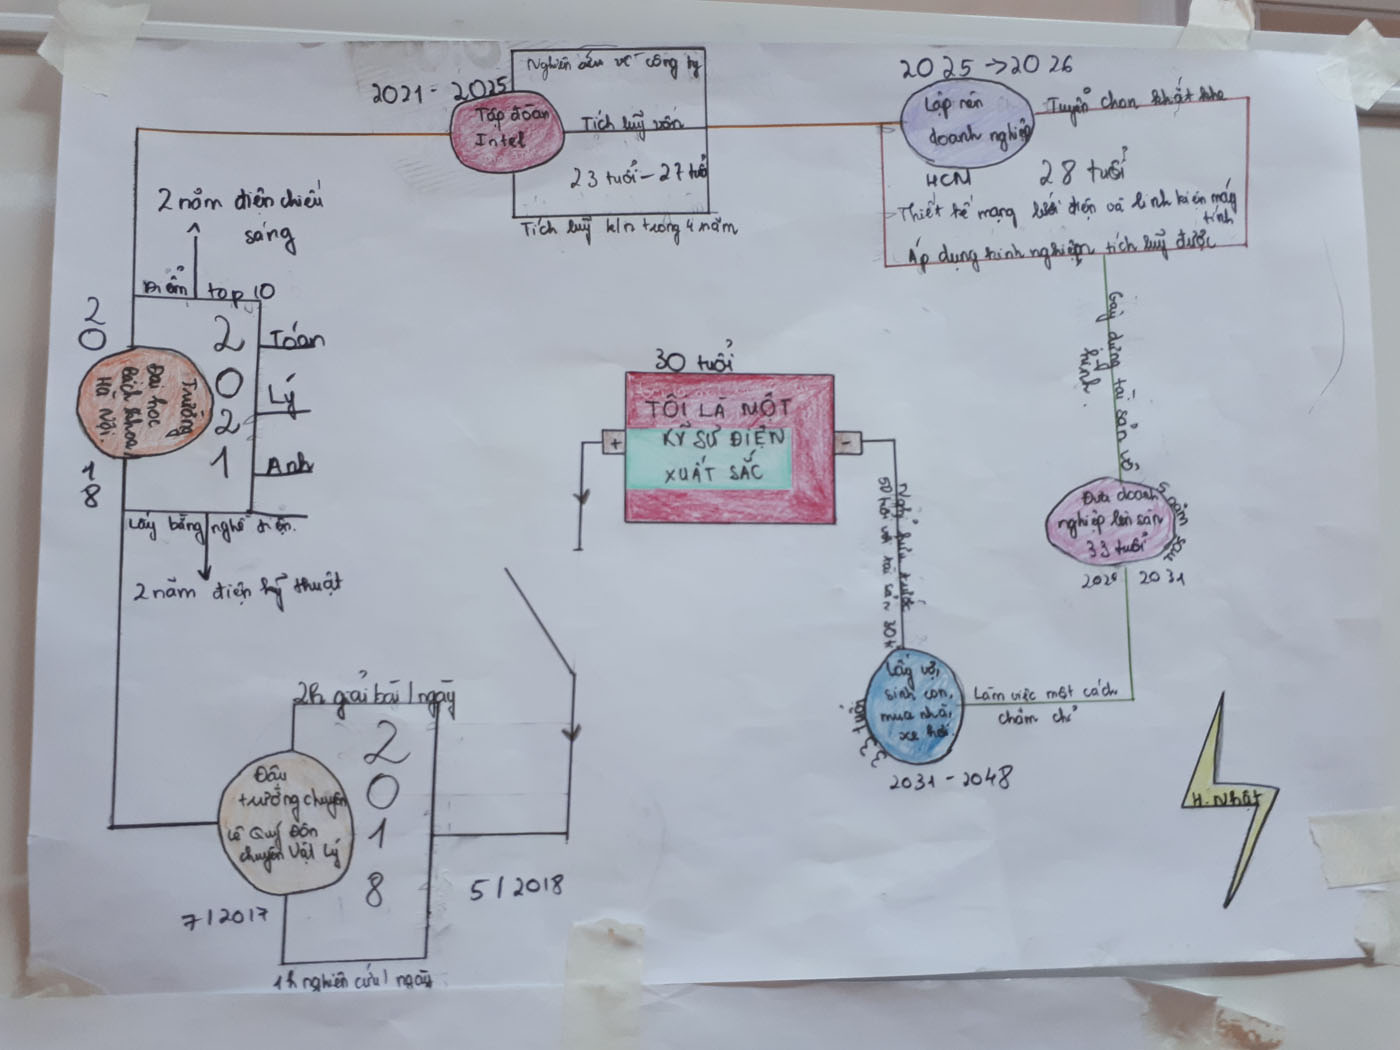 2021 - 2025
Tập đoàn
Intel
Nghiên cứu về công ty
Tích luỹ vốn
23 tuổi - 27 tuổi
Tích luỹ k/n trong 4 năm
2025 → 2026
Lập nên
doanh nghiệp
HCM
Tuyển chọn khắt khe
28 tuổi
Thiết kế mạng lưới điện và linh kiện máy
tính
Áp dụng kinh nghiệm tích luỹ được
2 năm điện chiếu
sáng
Điểm top 10
2018
Trường
Đại học
Bách khoa
Hà Nội.
2021
Toán
Lý
Anh
Lấy bằng nghề điện.
2 năm điện kỹ thuật
30 tuổi
TÔI LÀ MỘT
KỸ SƯ ĐIỆN
XUẤT SẮC
+
-
Gây dựng tài sản
hình.
Đưa doanh
nghiệp lên sàn
33 tuổi
5 năm sau
2031
Nghỉ hưu trước
50 tuổi với tài sản 30
Lấy vợ,
sinh con,
mua nhà,
xe hơi.
2031 - 2048
Làm việc một cách
chăm chỉ
2h giải bài / ngày
2018
Đậu
trường chuyên
Lê Quý Đôn
chuyên Vật Lý
7/2017
5/2018
1h nghiên cứu / ngày
H. Nhật